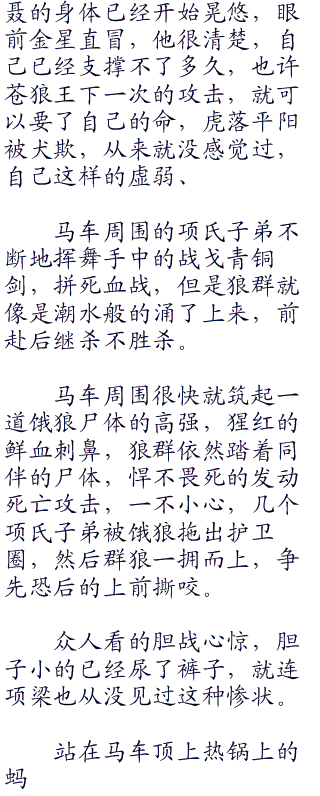 聂的身体已经开始晃悠，眼
前金星直冒，他很清楚，自
己已经支撑不了多久，也许
苍狼王下一次的攻击，就可
以要了自己的命，虎落平阳
被犬欺，从来就没感觉过，
自己这样的虚弱、
马车周围的项氏子弟不
断地挥舞手中的战戈青铜
剑，拼死血战，但是狼群就
像是潮水般的涌了上来，前
赴后继杀不胜杀。
马车周围很快就筑起一
道饿狼尸体的高强，猩红的
鲜血刺鼻，狼群依然踏着同
伴的尸体，悍不畏死的发动
死亡攻击，一不小心，几个
项氏子弟被饿狼拖出护卫
圈，然后群狼一拥而上，争
先恐后的上前撕咬。
众人看的胆战心惊，胆
子小的已经尿了裤子，就连
项梁也从没见过这种惨状。
站在马车顶上热锅上的
蚂